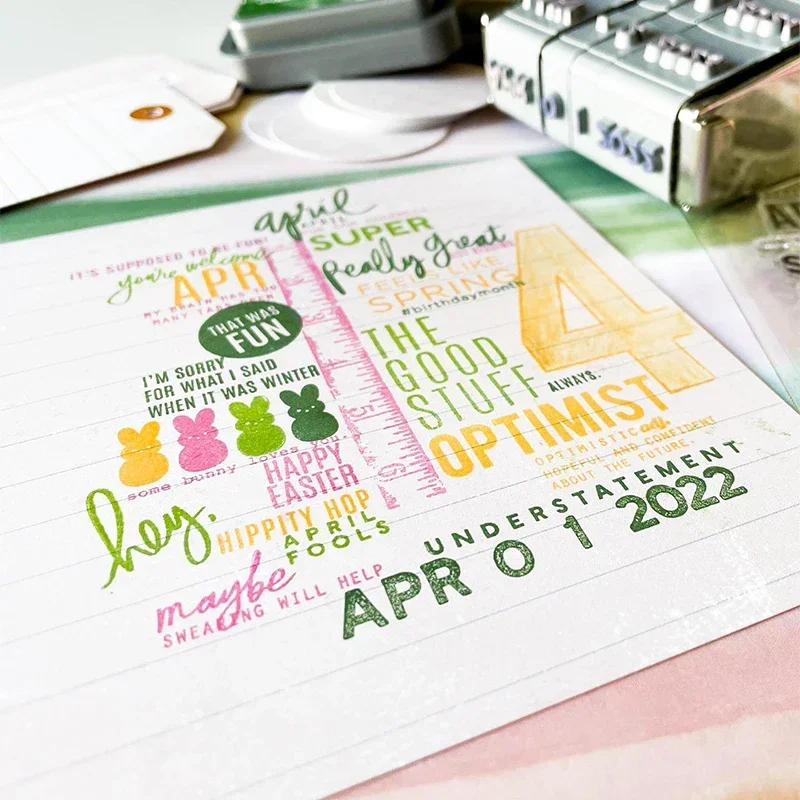 april
APRIL
IT'S SUPPOSED TO BE FUN!
you're welcome
APR
MY BRAIN HAS TOO
MANY TABS OPEN
THAT WAS
FUN
I'M SORRY
FOR WHAT I SAID
WHEN IT WAS WINTER
some bunny loves you.
HAPPY
EASTER
hey.
HIPPITY HOP
APRIL
FOOLS
maybe
SWEARING WILL HELP
SUPER
Really Great
FEELS LIKE
SPRING
#birthdaymonth
4
THE
GOOD
STUFF
ALWAYS.
OPTIMIST
OPTIMISTIC adj.
HOPEFUL AND CONFIDENT
ABOUT THE FUTURE.
UNDERSTATEMENT
APR 0 1 2022
4
5
6